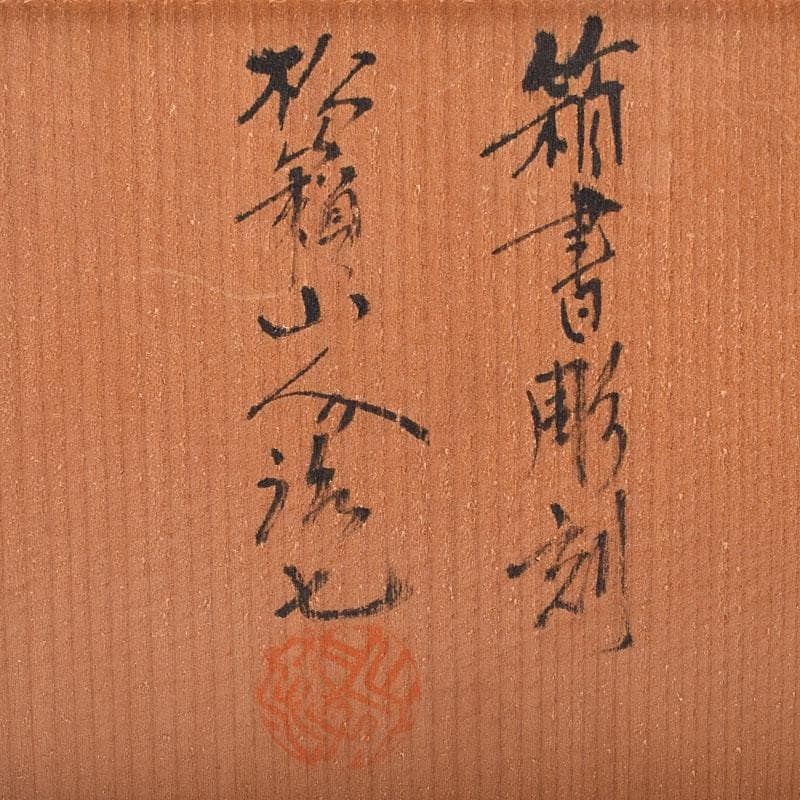 箱書彫刻
松籟山人誌也